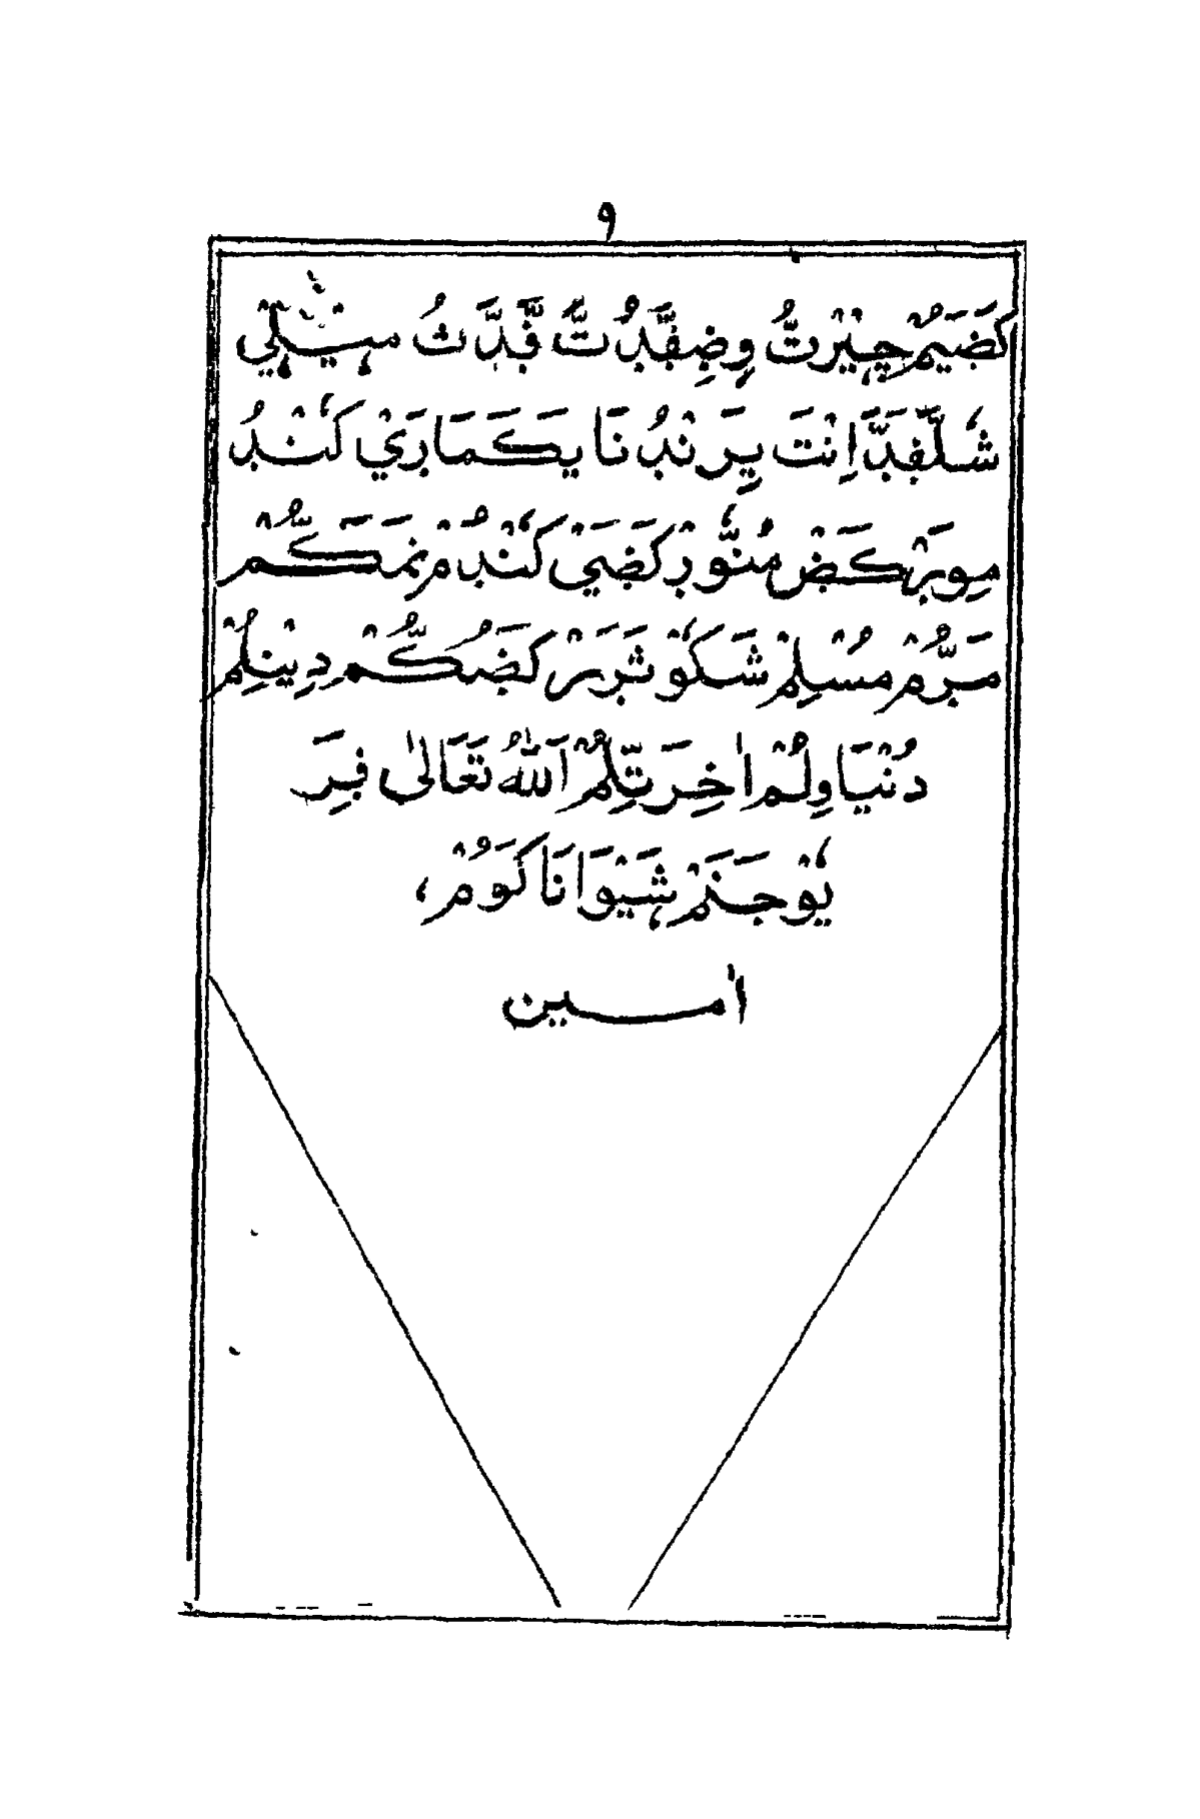 ٩
كَضَيُمْ چِيْرْتُّ وِضِفَّدُتُّ فَّدَّثُ میْـٰلٜيْ
شٗلَّفَدَّ اِنْتَ پِرَنْدُ نَا يَكَمَارَيْ كٗنْدُ
مِوبَرْ كَضْ مُنّٗورْ كَضَيْ كٗنْدُمْ نِمَكُّمْ
مَرُّمْ مُسْلِمْ شَكٗوْ ثَرَرْ كَضُكُّمْ دِيْنِلُمْ
دُنْيَاوِلُمْ اٰخِرَتِّلُمْ اَللهُ تَعَالٰى فِرَ
يٗوْجَنَمْ شَيْوَانَاكَوُمْ،
اٰمــين